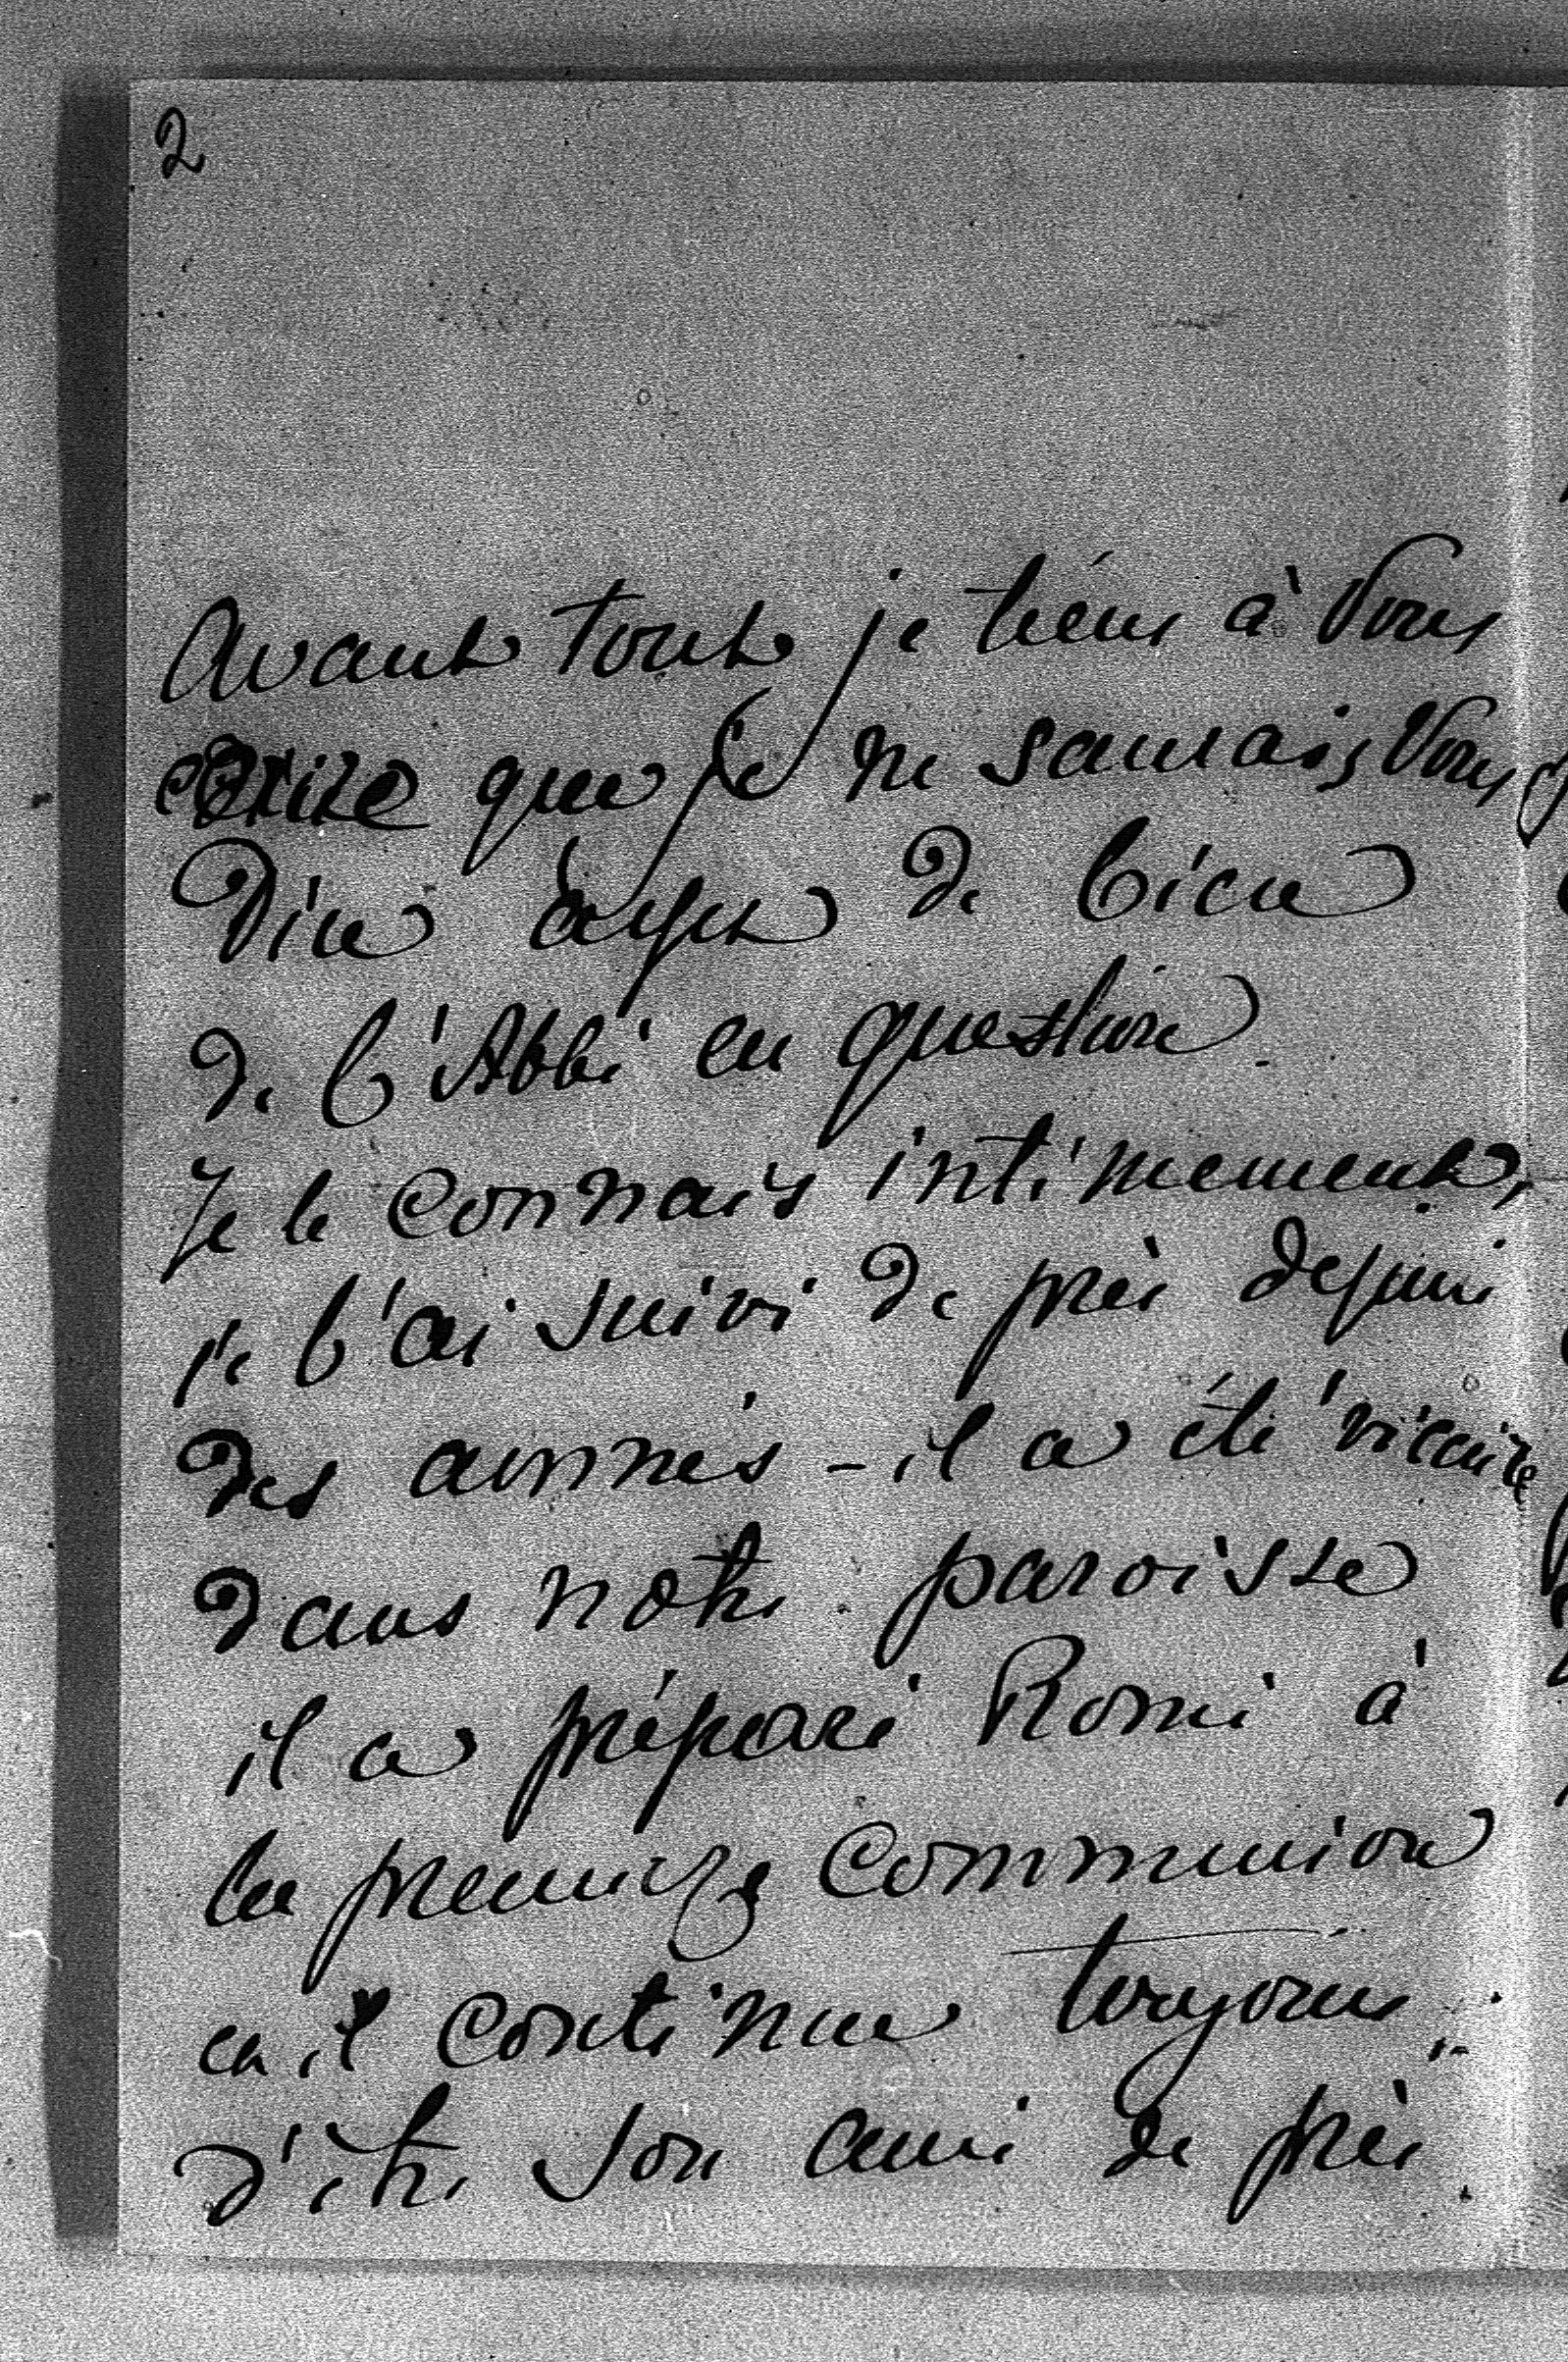 2
Avant tout je tiens à Vous
écrire que je ne saurais Vous
dire assez de bien
de l'Abbé en question.
Je le connais intimement,
je l'ai suivi de près depuis
des années - il a été vicaire
dans notre paroisse
il a préparé Romé à
la première Communion
et il continue toujours
d'être son ami de près.